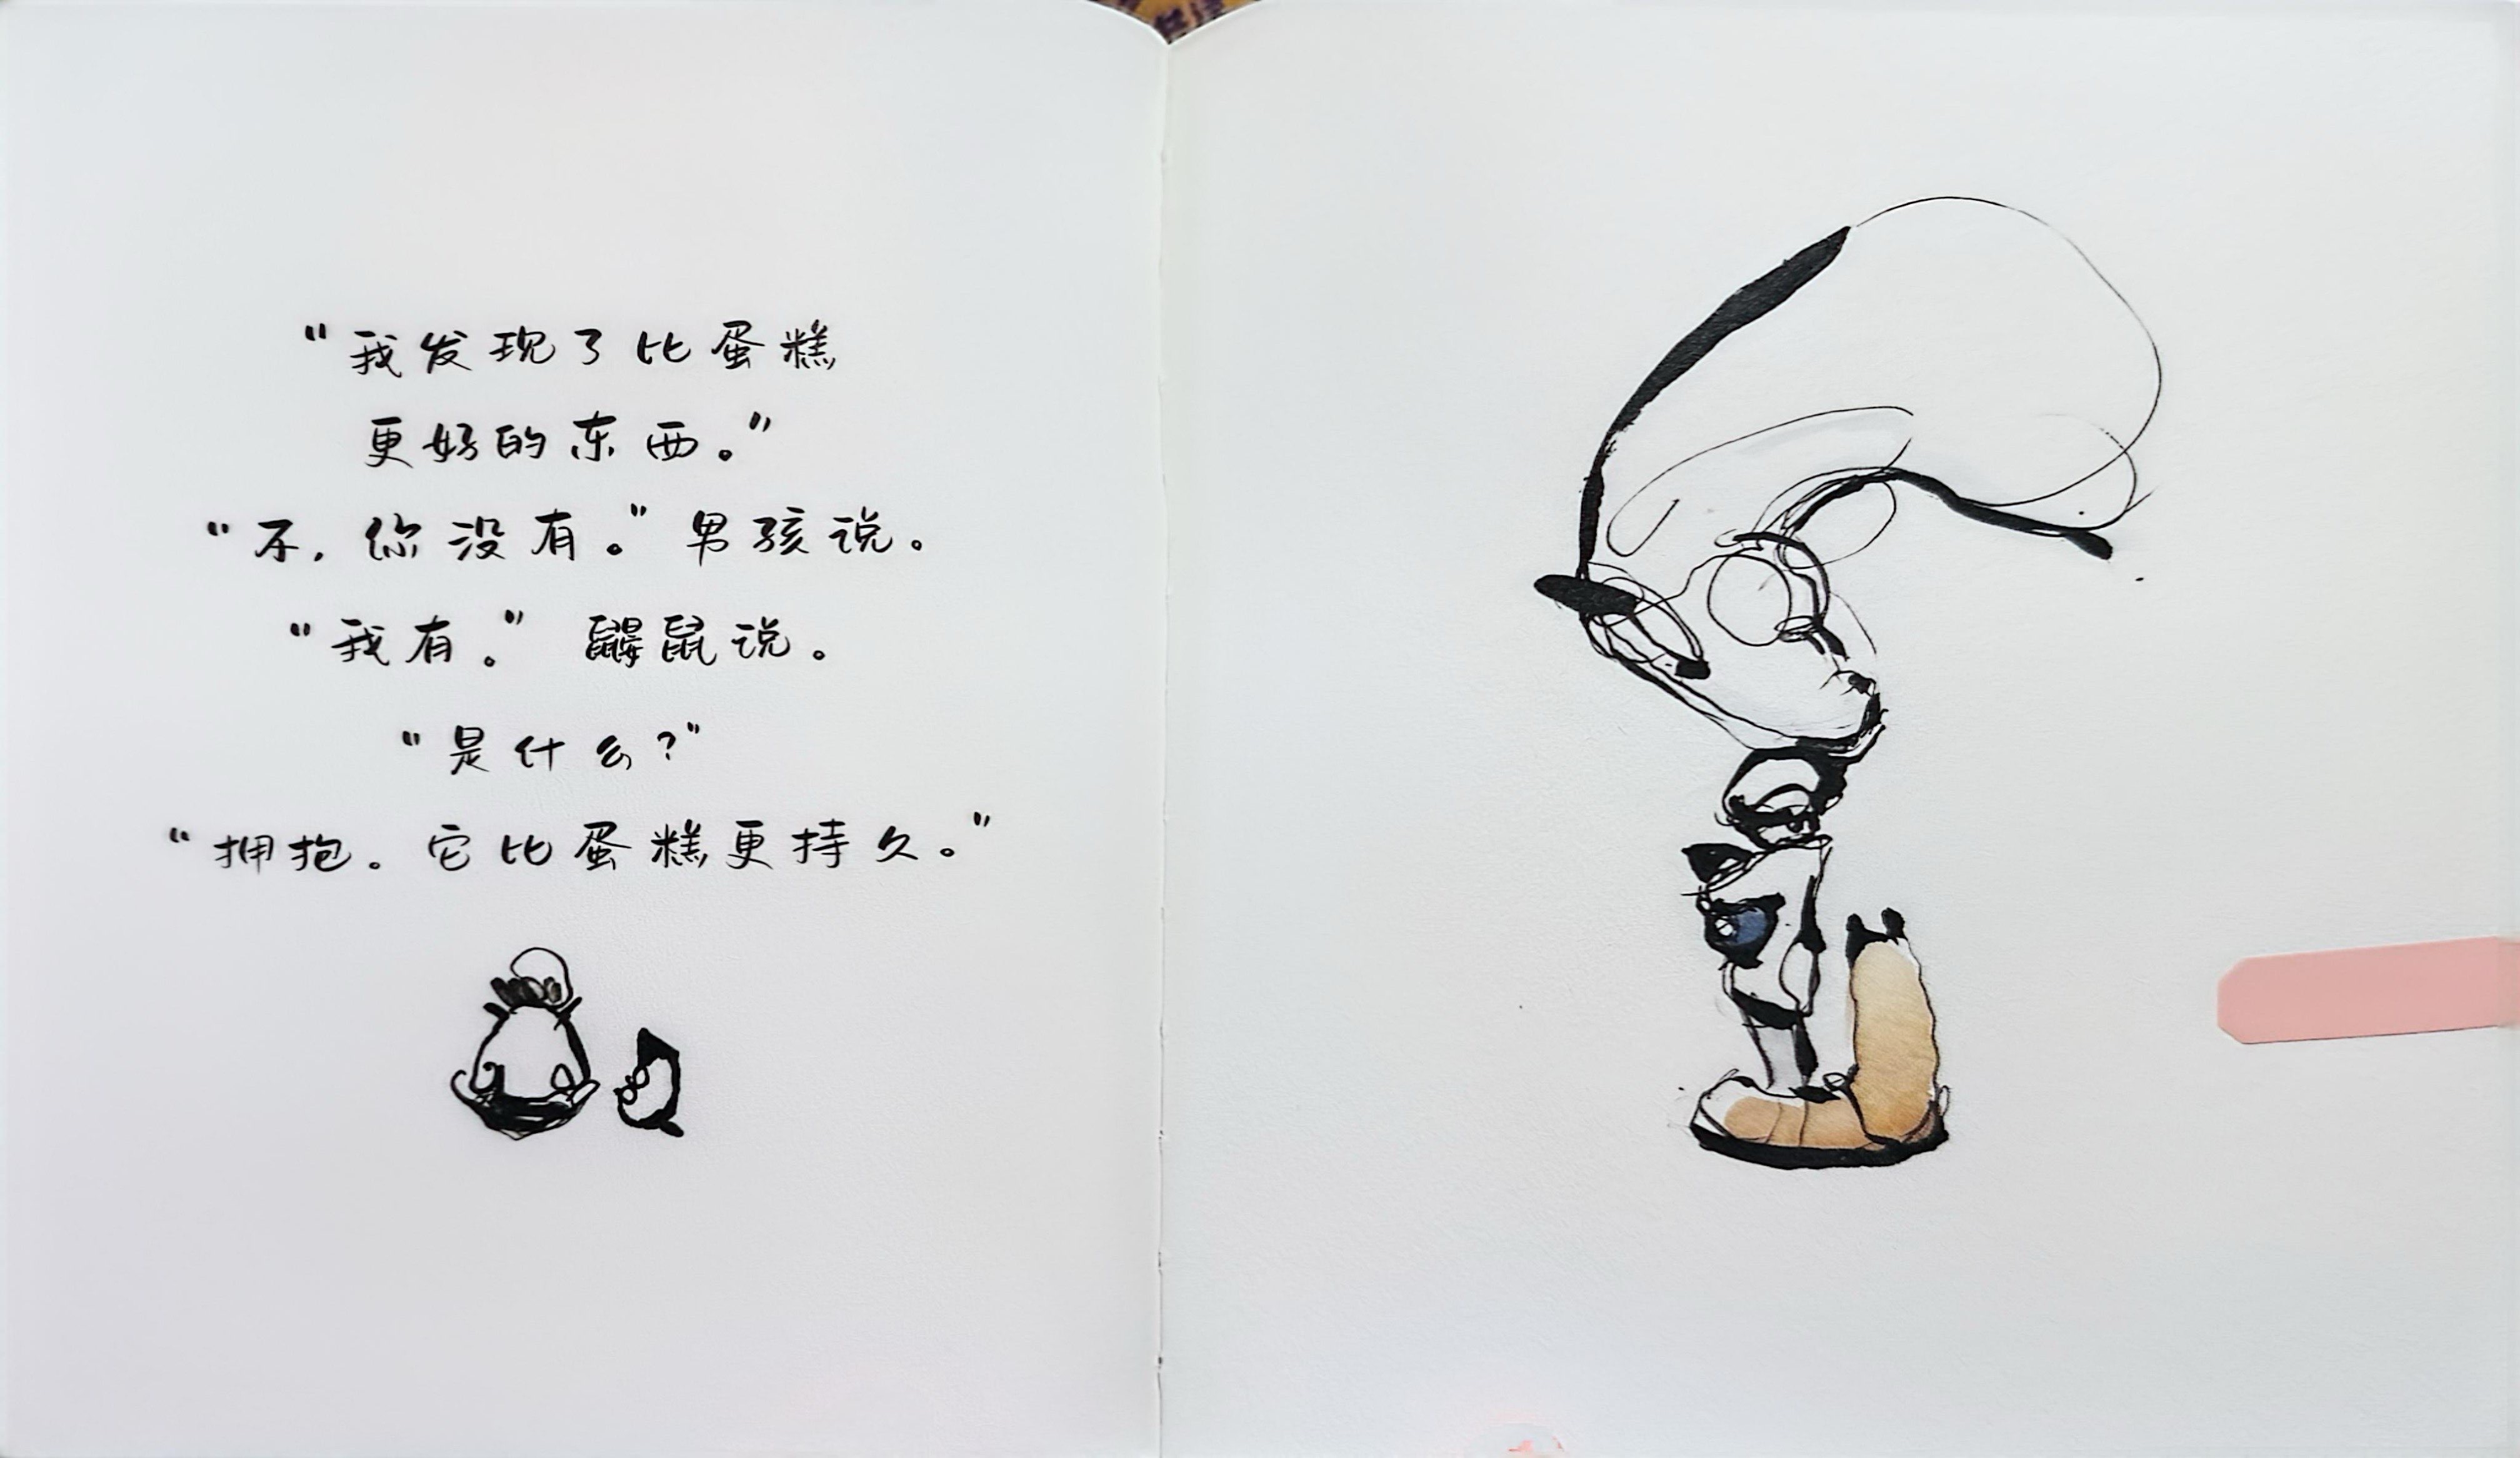 “我发现了比蛋糕
更好的东西。”
“不，你没有。”男孩说。
“我有。”鼹鼠说。
“是什么？”
“拥抱。它比蛋糕更持久。”